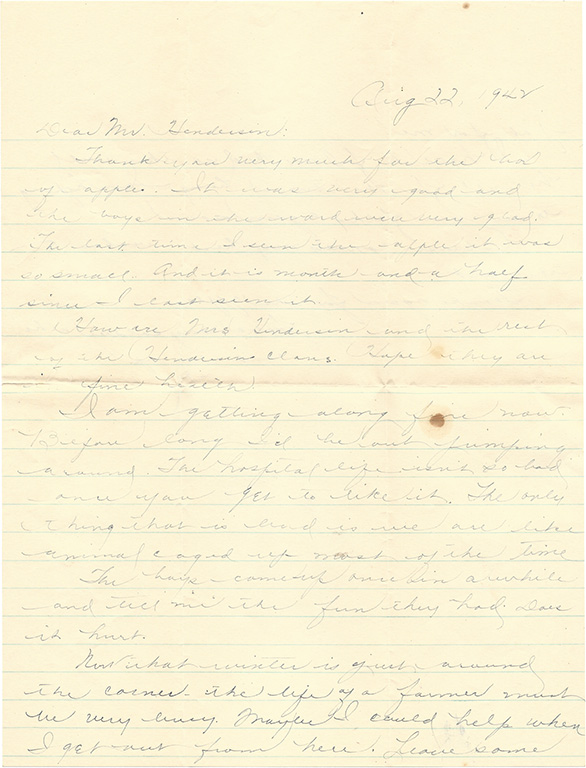 Aug 22, 1942
Dear Mr. Henderson:
Thank you very much for the box
of apple. It was very good and
the boys in the ward were very glad.
The last time I seen the apple it was
so small. And it is month and a half
since I last seen it.
How are Mrs Henderson and the rest
of the Henderson clans. Hope they are
fine health.
I am getting along fine now.
Before long I'd be out jumping
around. The hospital life isn't so bad
once you get to like it. The only
thing that is bad is we are like
animal caged up most of the time
The boys come up once in awhile
and tell me the fun they had. Does
it hurt.
Now that winter is just around
the corner the life of a farmer must
be very busy. Maybe I could help when
I get out from here. Leave some